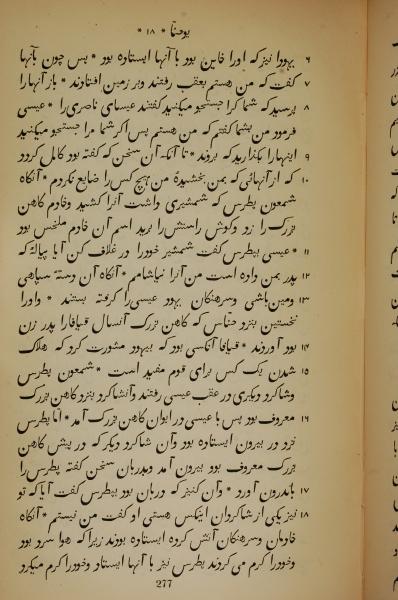 یوحنا * ۱۸ *
یهودا نیز که اورا خاین بود با آنها ایستاده بود * پس چون بآنها ۶
گفت که من هستم بعقب رفتند و بر زمین افتادند * باز آنها را ۷
پرسید که شما کرا جستجو میکنید گفتند عیسای ناصری را * عیسی ۸
فرمود من بشما گفتم که من هستم پس اگر شما مرا جستجو میکنید
اینهارا بگذارید که بروند * تا آنکه آن سخن که گفته بود کامل گردد ۹
که از آنهائی که بمن بخشیدهٔ من هیچ کس را ضایع نکردم * آنگاه ۱۰
شمعون پطرس که شمشیری داشت آنرا کشید و خادم کاهن
بزرک را زد و کوش راستش را برید اسم آن خادم ملخس بود
* عیسی بپطرس گفت شمشیر خودرا در غلاف کن آیا پیالهٔ که ۱۱
پدر بمن داده است من آنرا نیاشامم * آنگاه آن دستهٔ سپاهی ۱۲
و مین باشی و سرهنکان یهود عیسی را گرفته بستند * و اورا ۱۳
نخستین بنزد حنّاس که کاهن بزرک آنسال قیافارا پدر زن
بود آوردند * قیافا آنکسی بود که بیهود مشورت کرد که هلاک ۱۴
شدن یک کس برای قوم مفید است * شمعون پطرس ۱۵
و شاکرد دیکری در عقب عیسی رفتند و آنشاکرد بنزد کاهن بزرک
معروف بود پس با عیسی در ایوان کاهن بزرک آمد * امّا پطرس ۱۶
نزد در بیرون ایستاده بود و آن شاکرد دیکر که در پیش کاهن
بزرک معروف بود بیرون آمد و بدربان سخن گفته پطرس را
باندرون آورد * و آن کنیز که دربان بود بپطرس گفت آیا که تو ۱۷
نیز یکی از شاکردان اینکس هستی او گفت من نیستم * آنگاه ۱۸
خادمان و سرهنکان آتش کرده ایستاده بودند زیرا که هوا سرد بود
و خودرا کرم می کردند پطرس نیز با آنها ایستاد و خودرا کرم میکرد
277